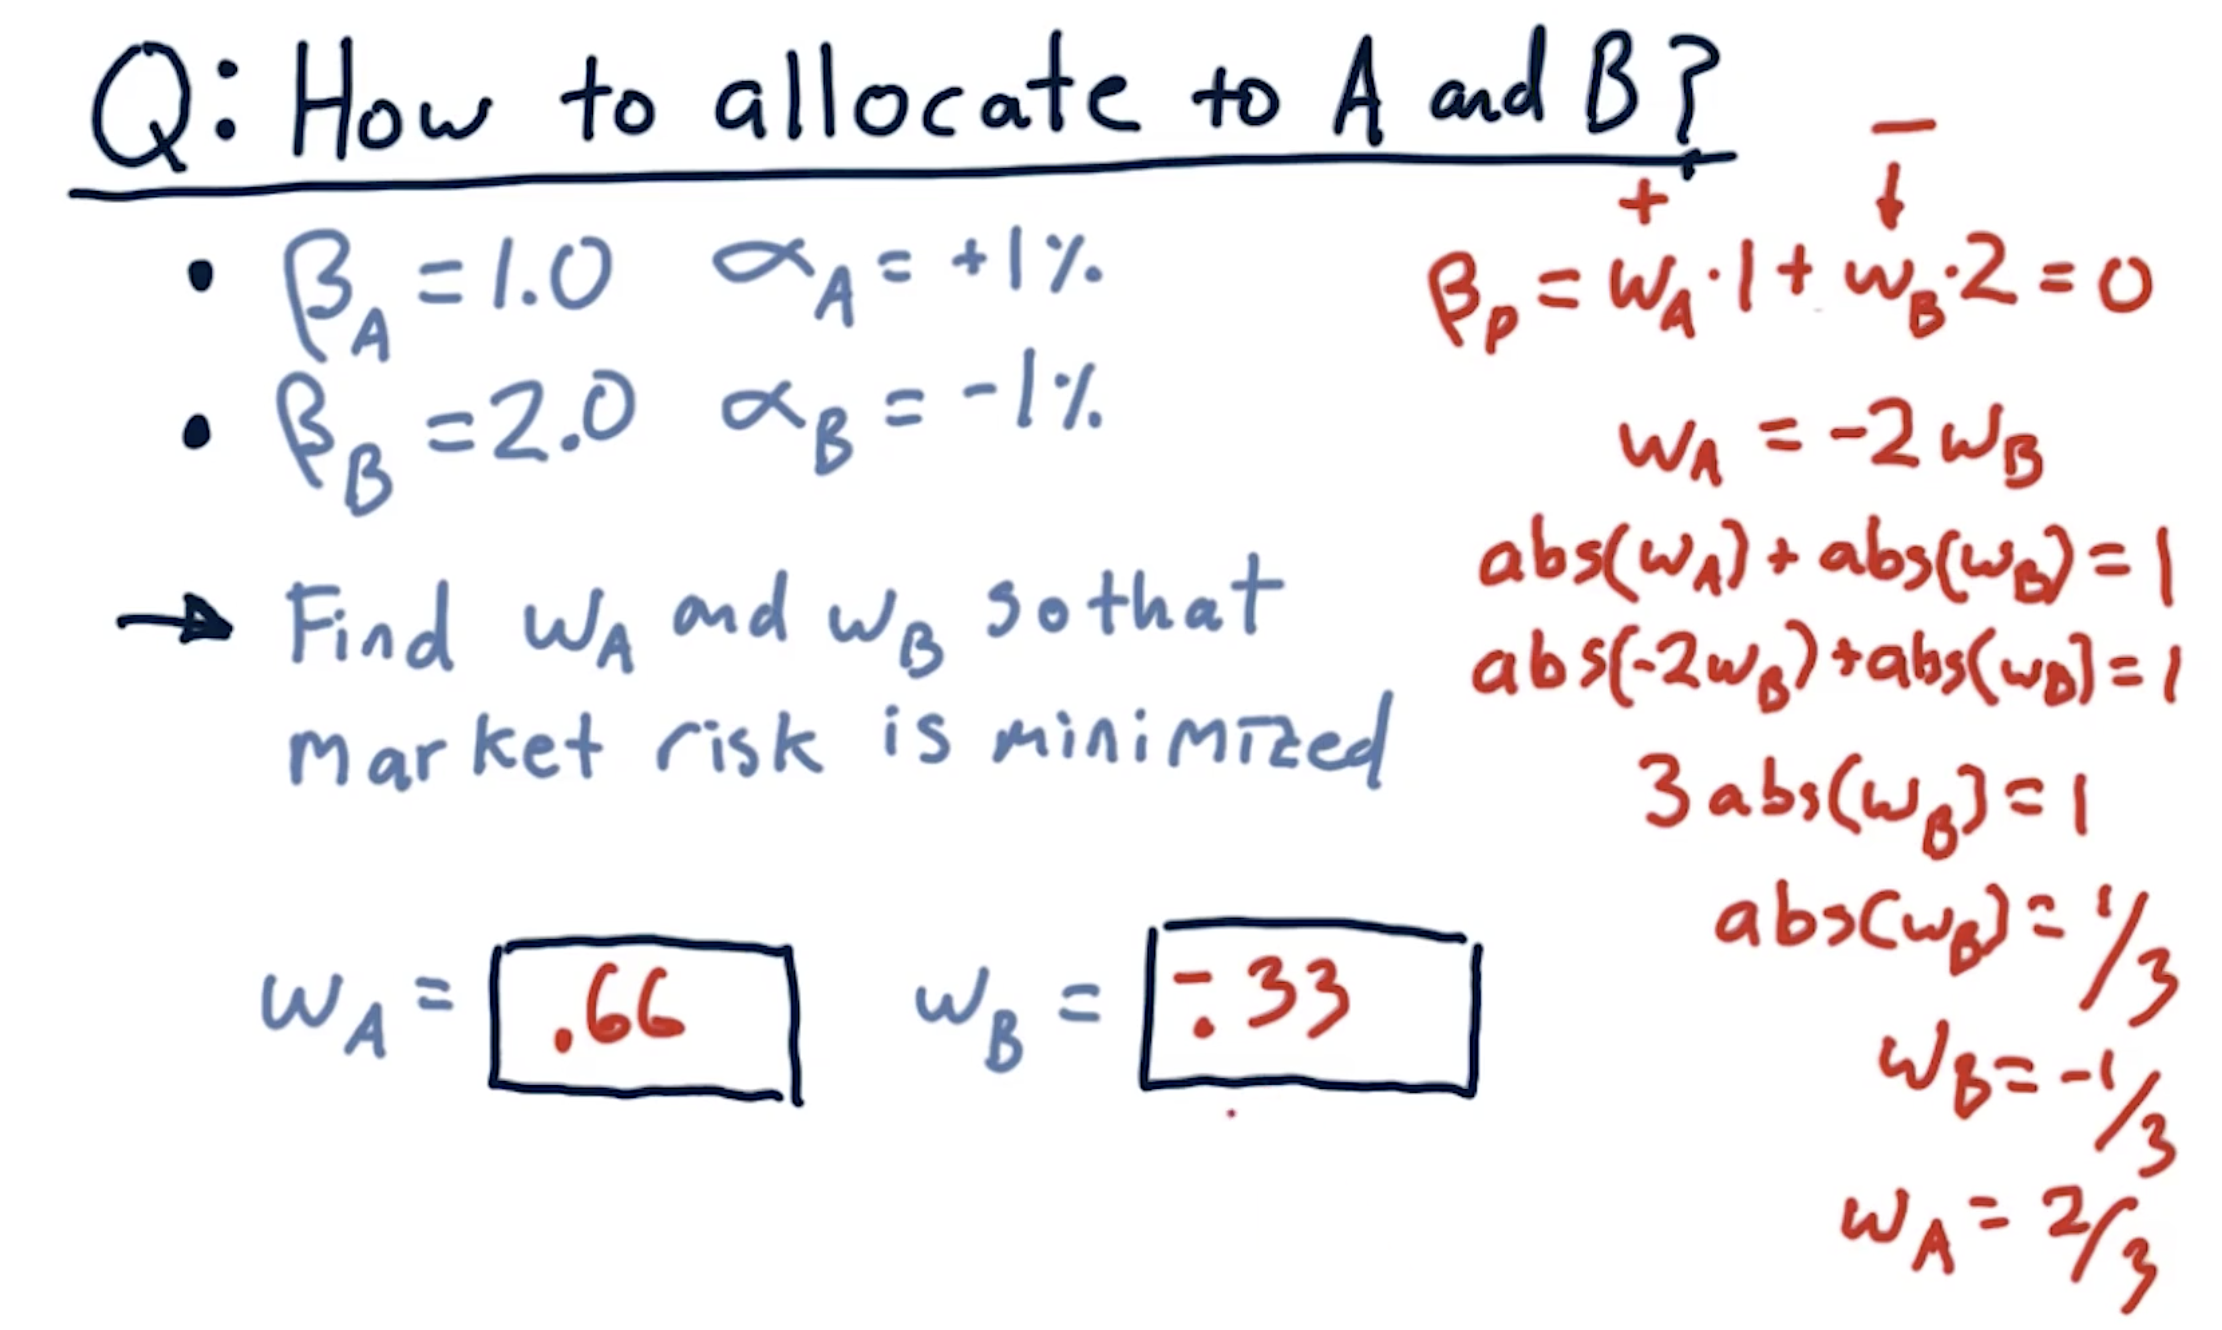 Q: How to allocate to A and B?
• β_A = 1.0 α_A = +1%
• β_B = 2.0 α_B = -1%
→ Find w_A and w_B so that
market risk is minimized
w_A = .66 w_B = -.33
+ −
↓
β_p = w_A·1 + w_B·2 = 0
w_A = -2w_B
abs(w_A) + abs(w_B) = 1
abs(-2w_B) + abs(w_B) = 1
3abs(w_B) = 1
abs(w_B) = 1/3
w_B = -1/3
w_A = 2/3